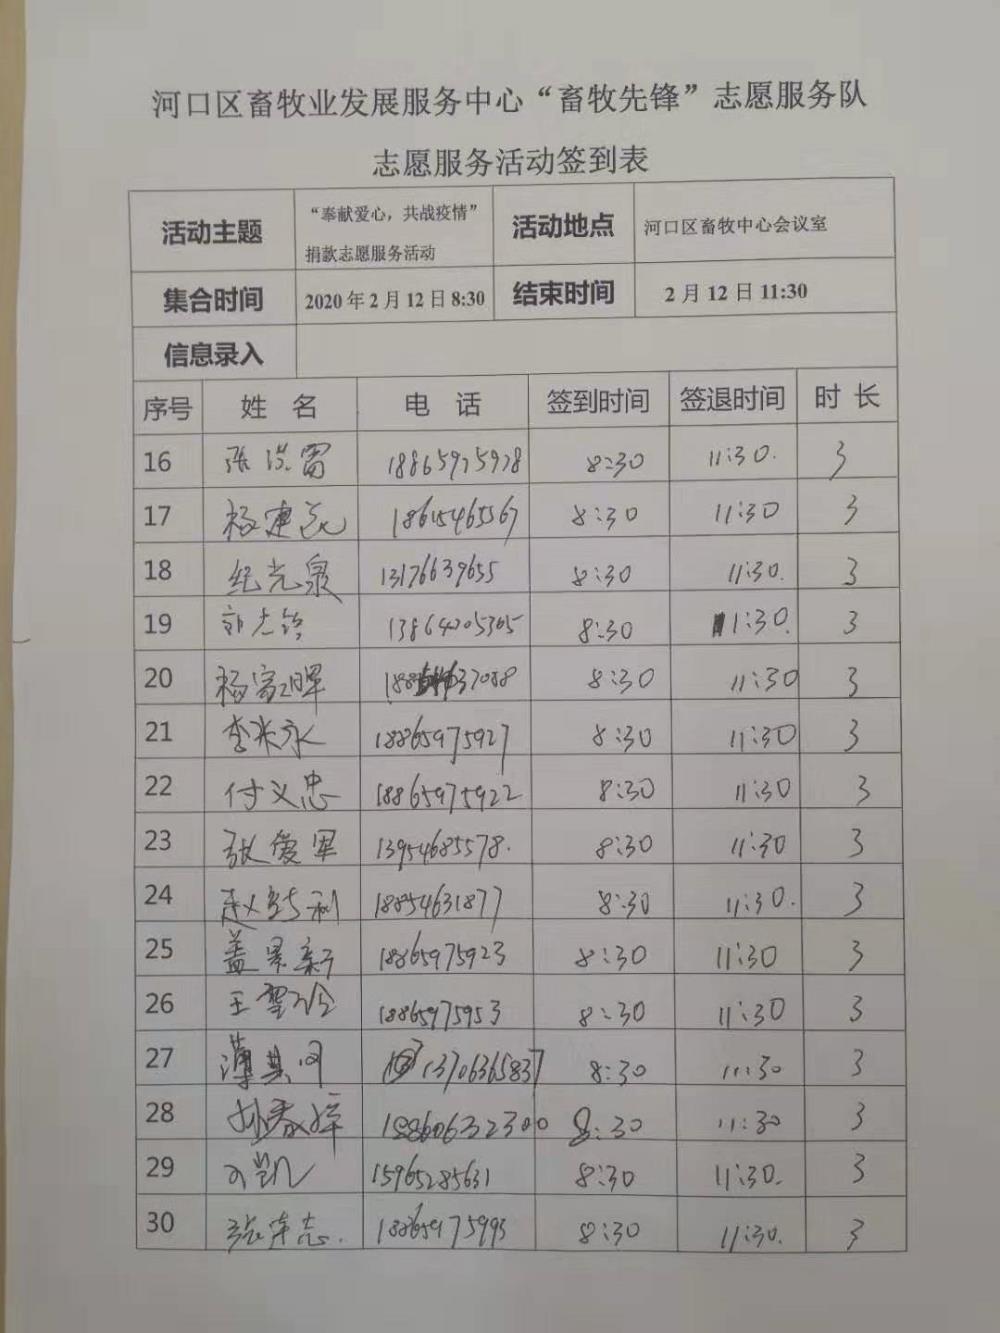 河口区畜牧业发展服务中心“畜牧先锋”志愿服务队
志愿服务活动签到表
活动主题 “奉献爱心，共战疫情” 活动地点 河口区畜牧中心会议室
捐款志愿服务活动
集合时间 2020年2月12日8:30 结束时间 2月12日11:30
信息录入
序号 姓名 电话 签到时间 签退时间 时长
16 张洪雷 18865975978 8:30 11:30. 3
17 杨建 18615465567 8:30 11:30 3
18 纪光泉 13176639655 8:30 11:30. 3
19 13864205365 8:30 11:30. 3
20 杨家晖 8:30 11:30 3
21 李米永 18865975927 8:30 11:30 3
22 付义忠 18865975922 8:30 11:30 3
23 张爱军 13954685578. 8:30 11:30 3
24 赵 利 18854631877 8:30 11:30. 3
25 盖景新 18865975923 8:30 11:30 3
26 王 18865975953 8:30 11:30 3
27 薄其 13706365837 8:30 11:30 3
28 18860632300 8:30 11:30 3
29 凯 15965285631 8:30 11:30. 3
30 张 志. 18865975993 8:30 11:30. 3